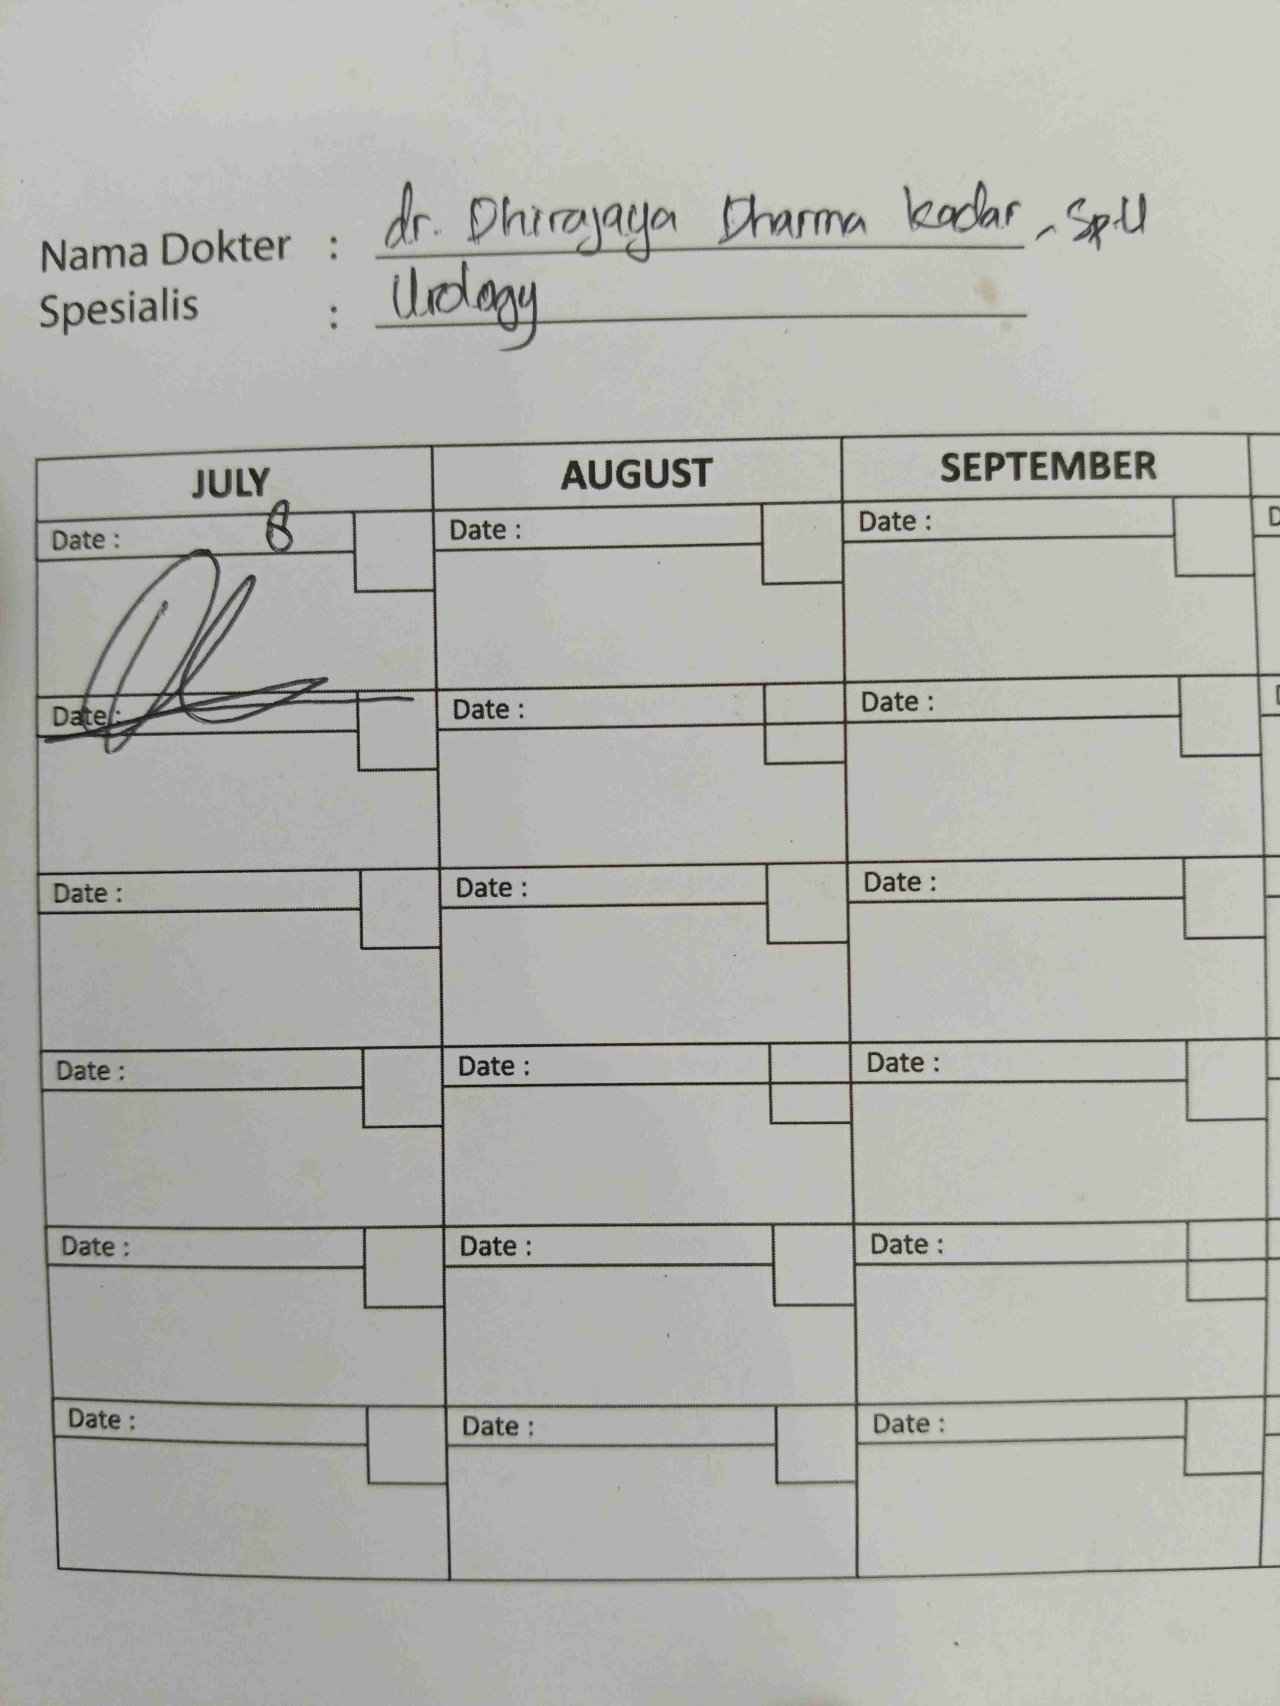 Nama Dokter : dr. Dhirajaya Dharma Kadar, Sp.U
Spesialis : Urology
JULY AUGUST SEPTEMBER
Date : 8 Date : Date : D
Date : Date : Date : D
Date : Date : Date :
Date : Date : Date :
Date : Date : Date :
Date : Date : Date :